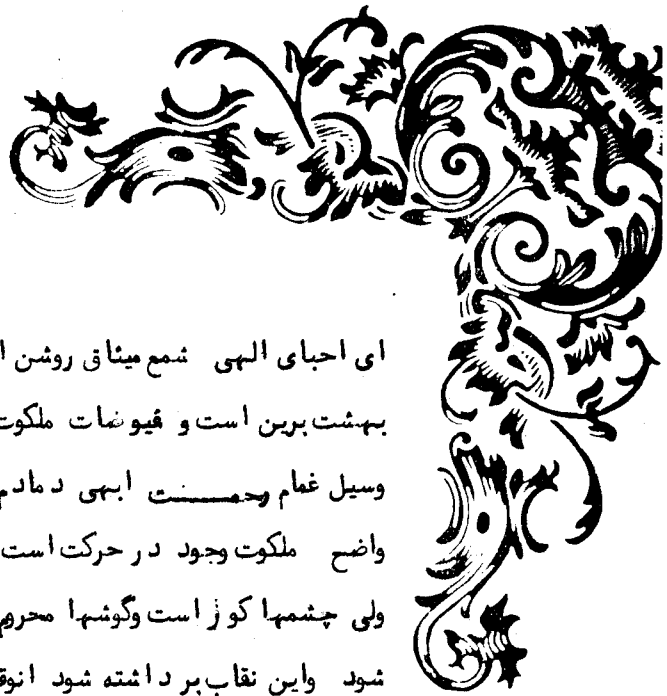 ای احبای الهی شمع میثاق روشن ا
بهشت برین است و فیوضات ملکوت
وسیل غمام رحمت ابهی دمادم
واضح ملکوت وجود در حرکت است
ولی چشمها کور است وگوشها محروم
شود واین نقاب بر داشته شود انوق